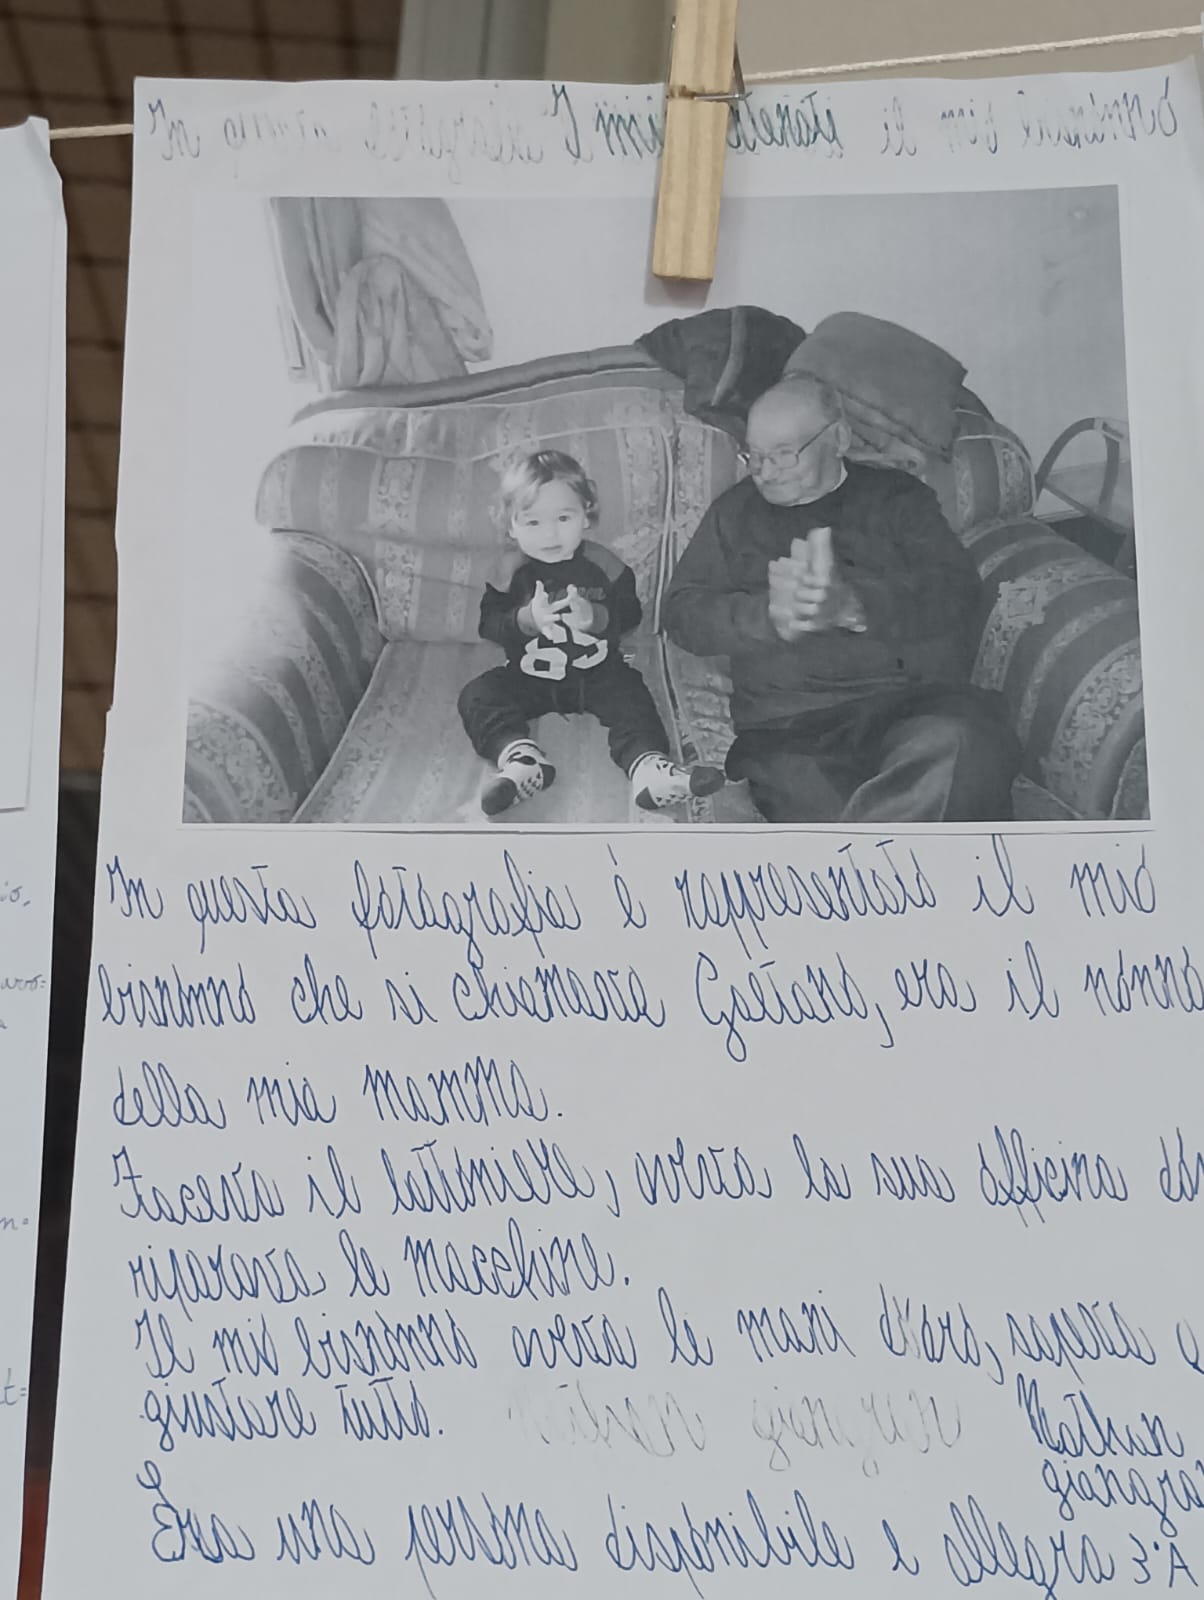 In questa fotografia è rappresentato il mio
bisnonno che si chiamava Gaetano, era il nonno
della mia mamma.
Faceva il lattoniere, aveva la sua officina do
riparava le macchine.
Il mio bisnonno aveva le mani d'oro, sapeva a
giustare tutto. Nathan
giangra
Era una persona disponibile e allegra 3°A